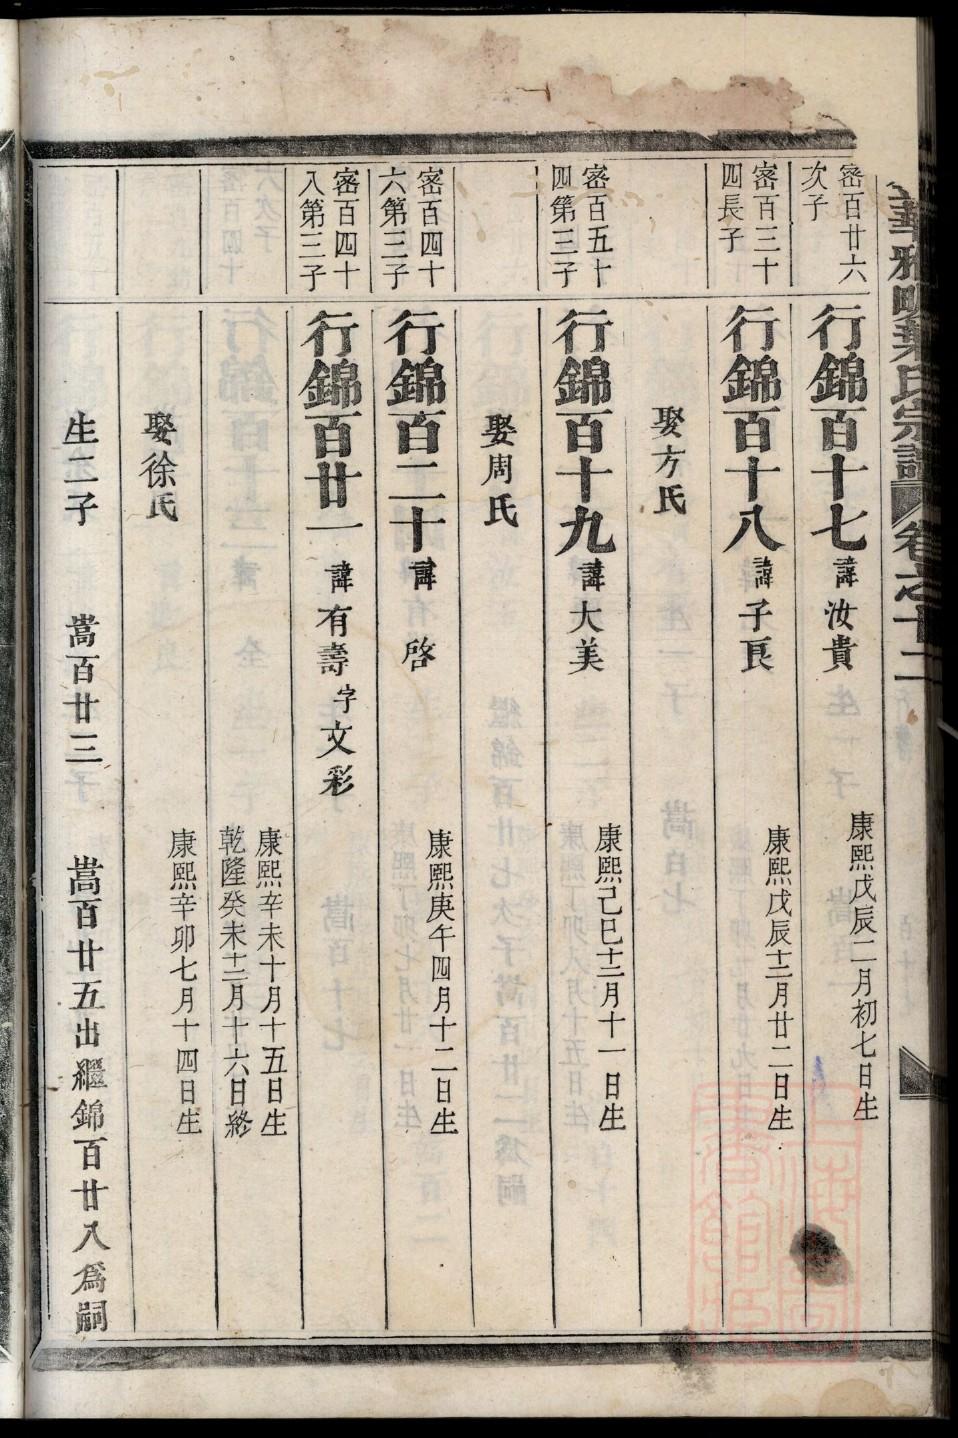 華雅畈葉氏宗譜 卷之十二
密百廿六次子
行錦百十七 諱汝貴 康熙戊辰二月初七日生
密百三十四長子
行錦百十八 諱子良 康熙戊辰十二月廿二日生
娶方氏
密百五十四第三子
行錦百十九 諱大美 康熙己巳十二月十一日生
娶周氏
密百四十六第三子
行錦百二十 諱有啓 康熙庚午四月十二日生
密百四十八第三子
行錦百廿一 諱有壽 字文彩 康熙辛未十月十五日生
乾隆癸未十二月十六日終
娶徐氏 康熙辛卯七月十四日生
生二子 嵩百廿三 嵩百廿五出繼錦百廿八爲嗣